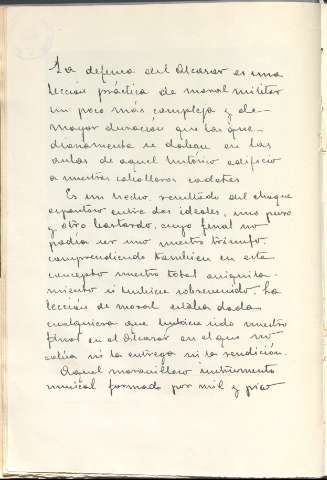 La defensa del Alcázar es una
lección práctica de moral militar
un poco más compleja y de
mayor duración que las que
diariamente se daban en las
aulas de aquel histórico edificio
a nuestros caballeros cadetes
Es un hecho, resultado del choque
espantoso entre dos ideales, uno puro
y otro bastardo, cuyo final no
podía ser sino nuestro triunfo,
comprendiendo también en este
concepto nuestro total aniquila-
miento si hubiera sobrevenido. La
lección de moral estaba dada
cualquiera que hubiera sido nuestro
final en el Alcázar en el que no
cabía ni la entrega ni la rendición.
Aquel maravilloso instrumento
musical formado por mil y pico